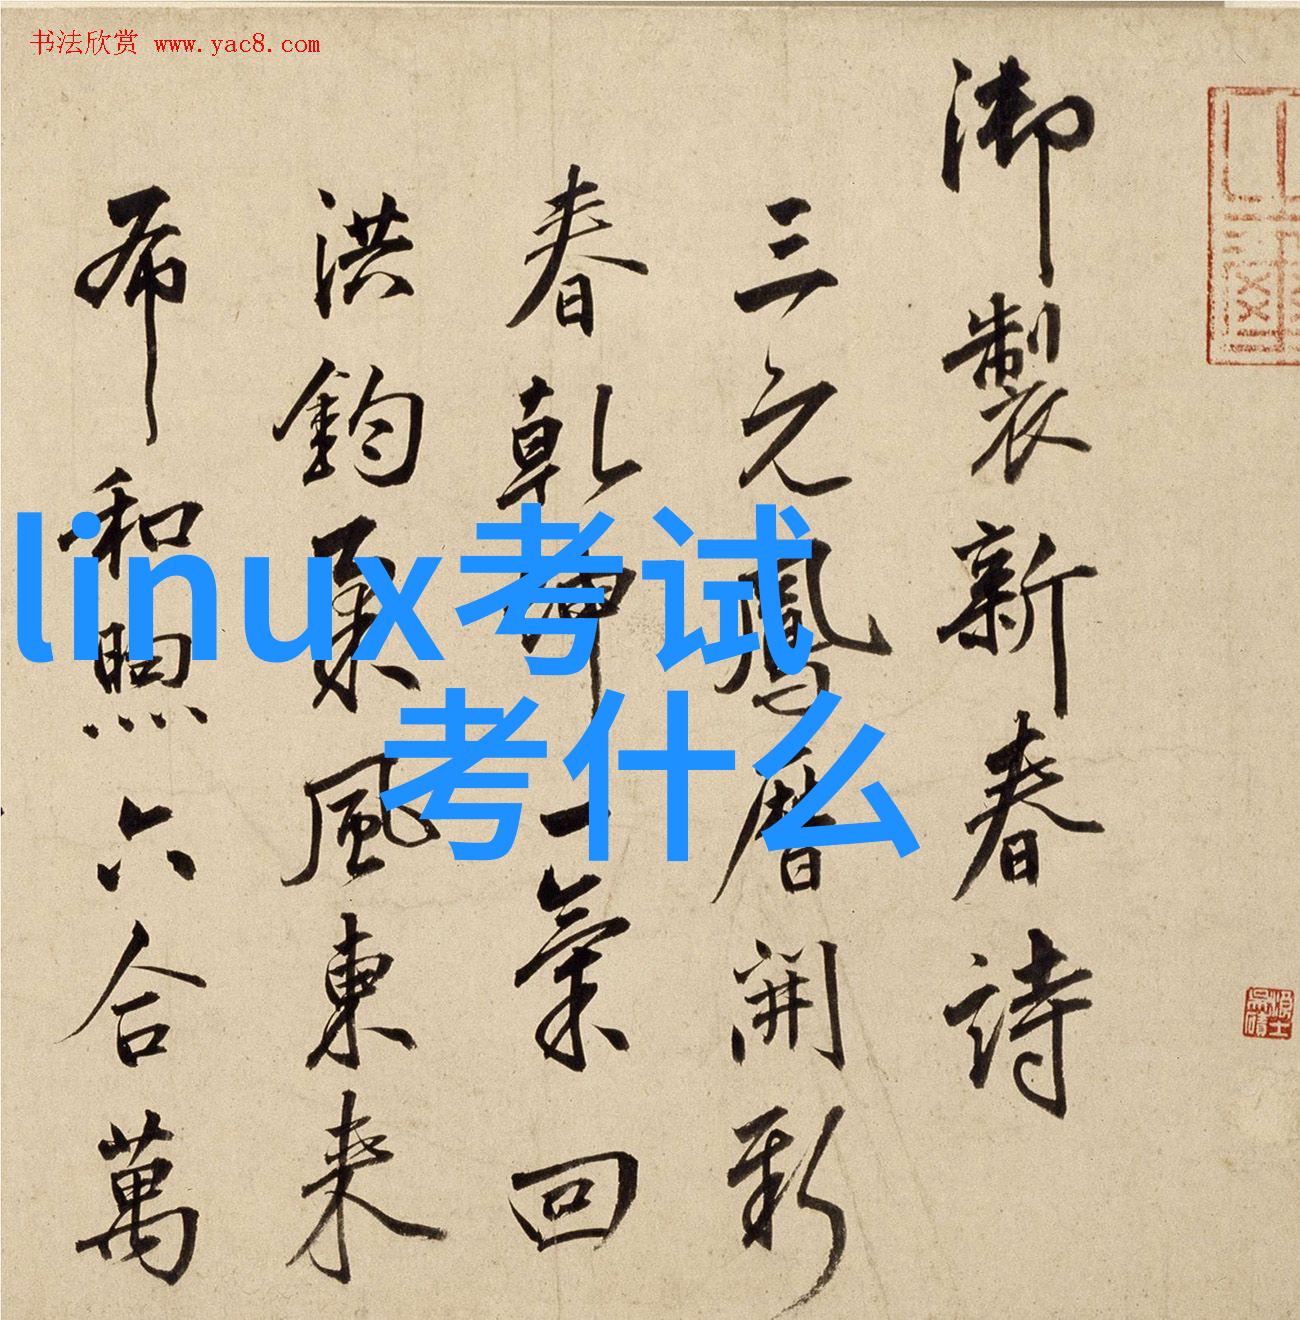 书法欣赏 www.yac8.com
御製新春詩
三元鳳曆開新
春乾坤一氣回
洪鈞東風東来
布和煦六合萬
linux考试
考什么